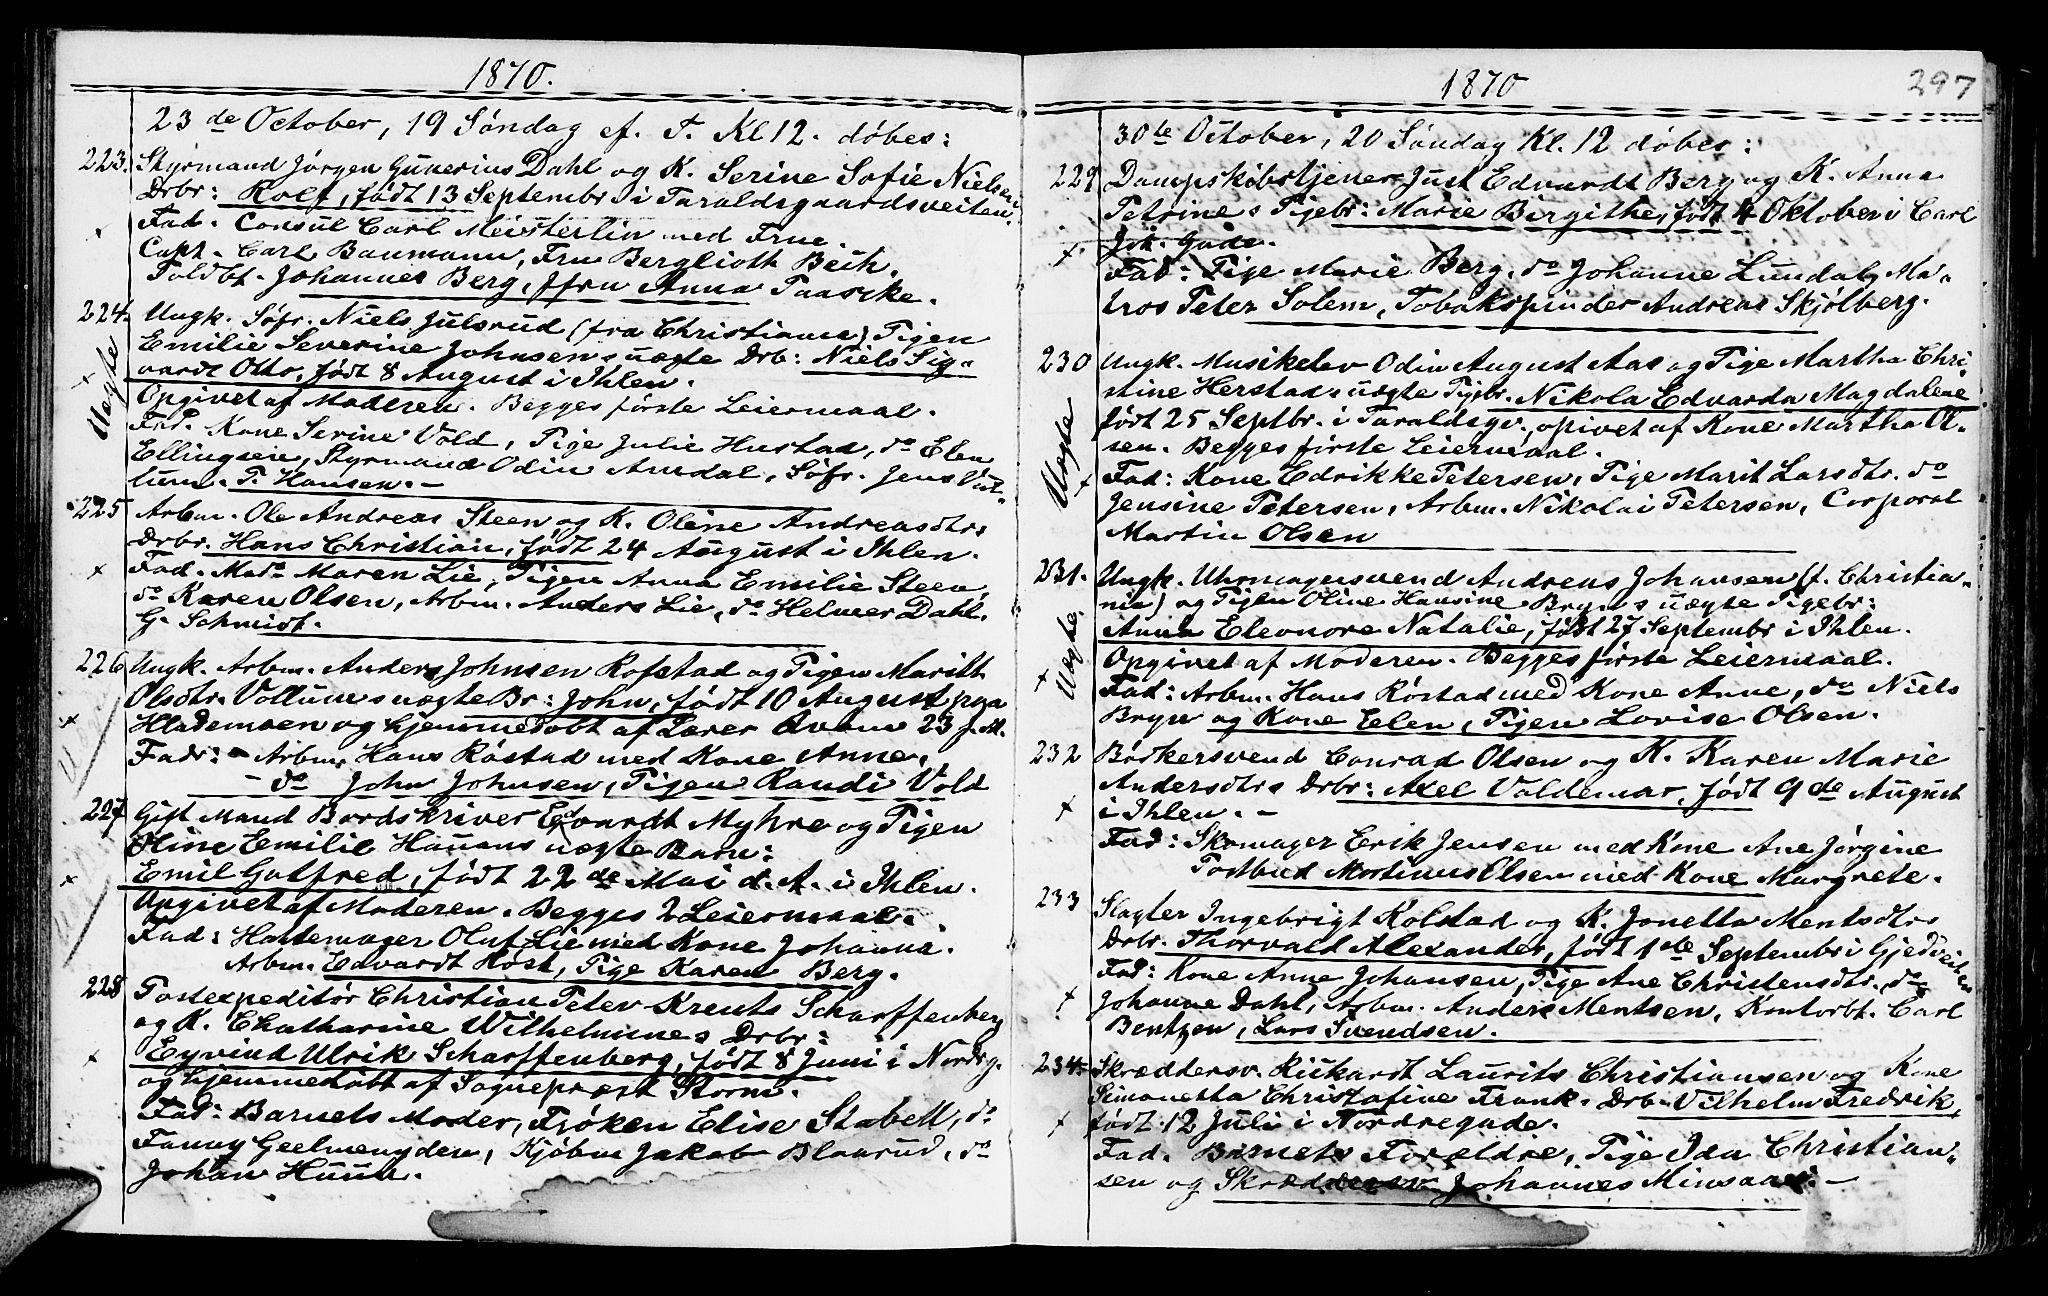 1870.
23de October, 19 Søndag ef. T. Kl 12. døbes:
223. Styrmand Jørgen Gunerius Dahl og K. Serine Sofie Nielsens
Drbr: Rolf, født 13 Septembr i Taraldsgaardsveiten.
Fad. Consul Carl Meisterlin med Frue.
Capt. Carl Baumann, Fru Berglioth Beck.
Toldbt. Johannes Berg, ffru Anna Paaske.
224. Ungk. Søfr. Niels Julsrud (fra Christiania) Tigen
Emilie Severine Johnsens uægte Drb: Niels Sig-
vardt Otto, født 8 August i Ihlen.
Uægte
Opgivet af Moderen. Begges første Leiermaal.
Fad. Kone Serine Vold, Pige Julie Hustad, do Elen
Ellingsen, Styrmand Odin Amdal, Søfr. Jens
P. Hansen. -
225 Arbm. Ole Andreas Steen og K. Oline Andreasdtrs
Drbr. Hans Christian, født 24 August i Ihlen.
Fad. Mad. Maren Lie, Pigen Anna Emilie Steen,
do Karen Olsen, Arbm. Anders Lie, do Helmer Dahl.
G. Schmidt.
226 Ungk. Arbm. Anders Johnsen Rofstad og Pigen Maritt
Olsdtr. Vollums uægte Br: John, født 10 August paa
Hlademoen og hjemmedøbt af Lærer Qvam 23 f. M.
Fadr: - Arbm. Hans Røstad med Kone Anne,
- do John Johnsen, Pigen Randi Vold
227 Gift Mand Bordskriver Edvardt Myhre og Pigen
Oline Emilie Hauans uægte Barn:
Emil Gotfred, født 22de Mai d. A. i Ihlen.
Opgivet af Moderen. Begges 2 Leiermaal.
Fad: Hattemager Oluf Lie med Kone Johanna.
Arbm. Edvardt Røst, Pige Karen Berg.
228 Postexpeditør Christian Peter Krents Scharffenberg
og K. Chatharine Wilhelmines Drbr:
Eyvind Ulrik Scharffenberg, født 8 Juni i Nordrg.
og hjemmedøbt af Sogneprest Storm.
Fad: Barnets Moder, Frøken Elise Stabell, do
Fanny Geelmeuyden, Kjøbm Jakob Blaurud, do
Johan Huun.
1870
297
30te October, 20 Søndag Kl. 12 døbes:
229 Dampskibstjener Just Edvardt Berg og K. Anna
Petrines Pigebr: Marie Birgithe, født 4 Oktober i Carl
Joh. Gade.
Fad: Pige Marie Berg, do Johanne Lundal, Ma-
tros Peter Solem, Tobakspinder Andreas Skjølberg.
230 Ungk. Musikelev Odin August Aas og Pige Martha Chri-
stine Herstads uægte Pigebr. Nikola Edvarda Magdalene
født 25 Septbr. i Taraldsgv., opivet af Kone Martha Ol-
sen. Begges første Leiermaal.
Uægte
Fad: Kone Edrikke Petersen, Pige Marit Larsdtr. do
Jensine Petersen, Arbm. Nikolai Petersen, Corporal
Martin Olsen
231. Ungk. Uhrmagersvend Andreas Johansen (f. Christia-
nia) og Pigen Oline Hansine Bryns uægte Pigebr:
Anna Eleonore Natalie, født 27 Septembr i Ihlen.
Uægte.
Opgivet af Moderen. Begges første Leiermaal.
Fad: Arbm. Hans Røstad med Kone Anne, do Niels
Bryn og Kone Elen, Pigen Lovise Olsen.
232 Børkersvend Conrad Olsen og K. Karen Marie
Andersdtrs Drbr: Axel Valdemar, født 9de August
i Ihlen. -
Fad: Skomager Erik Jensen med Kone Ane Jørgine
Postbud Martinus Olsen med Kone Margrete.
233 Slagter Ingebrigt Kolstad og K. Jonetta Mentsdtrs
Drbr. Thorvald Alexander, født 1ste Septembr i Gjedveiten
Fad: Kone Anne Johansen, Pige Ane Christensdtr. do
Johanne Dahl, Arbm. Anders Mentsen, Kontorbt. Carl
Bentzen, Lars Svendsen.
234. Skræddersv. Rickardt Laurits Christiansen og Kone
Simonetta Christofine Frank. Drb. Vilhelm Fredrik,
født 12 Juli i Nordregade.
Fad. Barnets Forældre, Pige Ida Christian-
sen og Skræddersv Johannes Minsaas. -